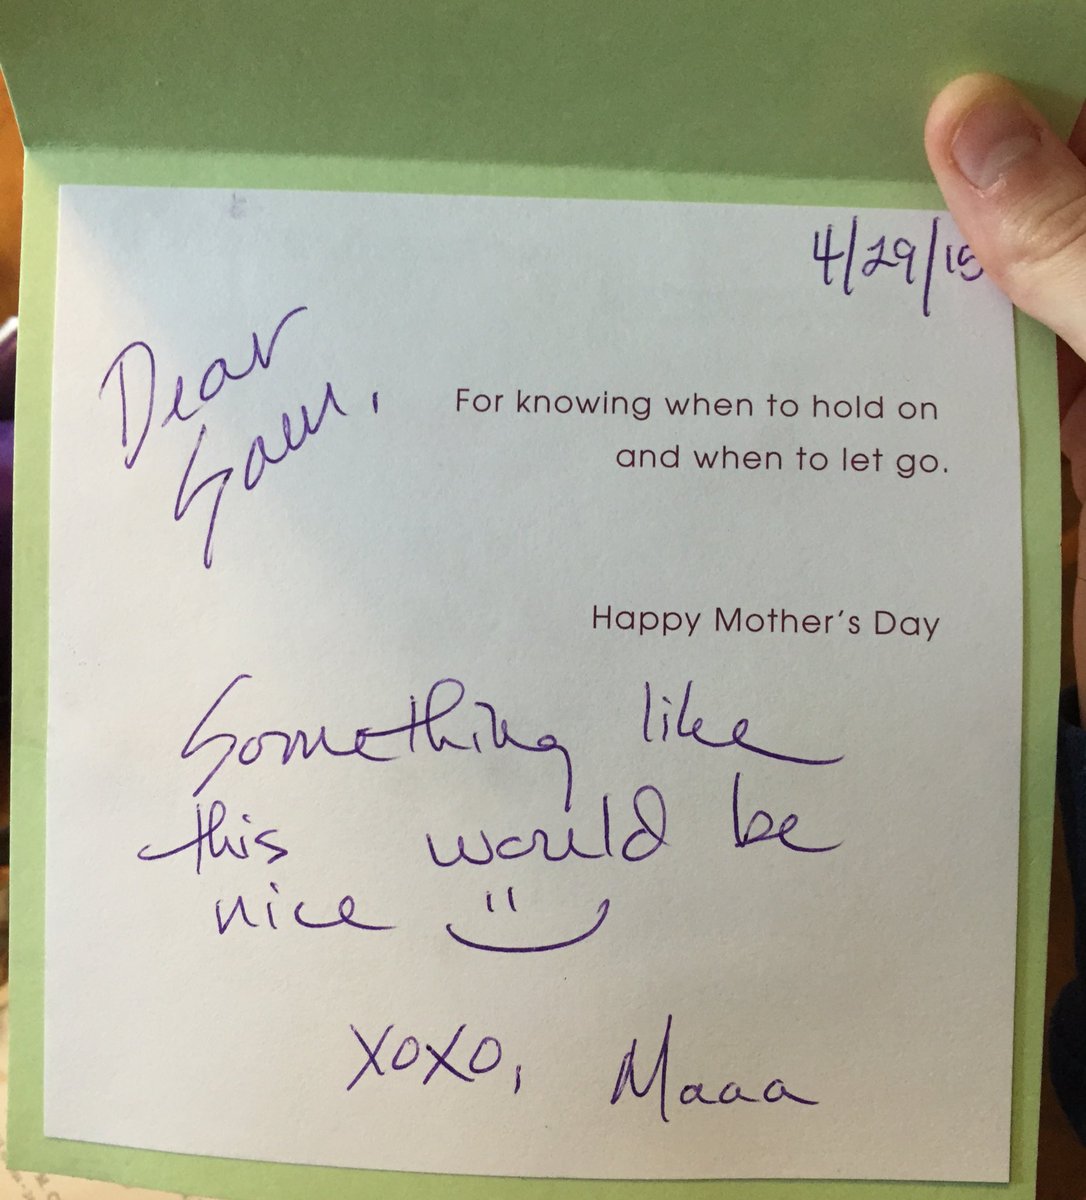 4/29/15
Dear
Sam,
For knowing when to hold on
and when to let go.
Happy Mother's Day
Something like
this would be
nice
XOXO, Maaa